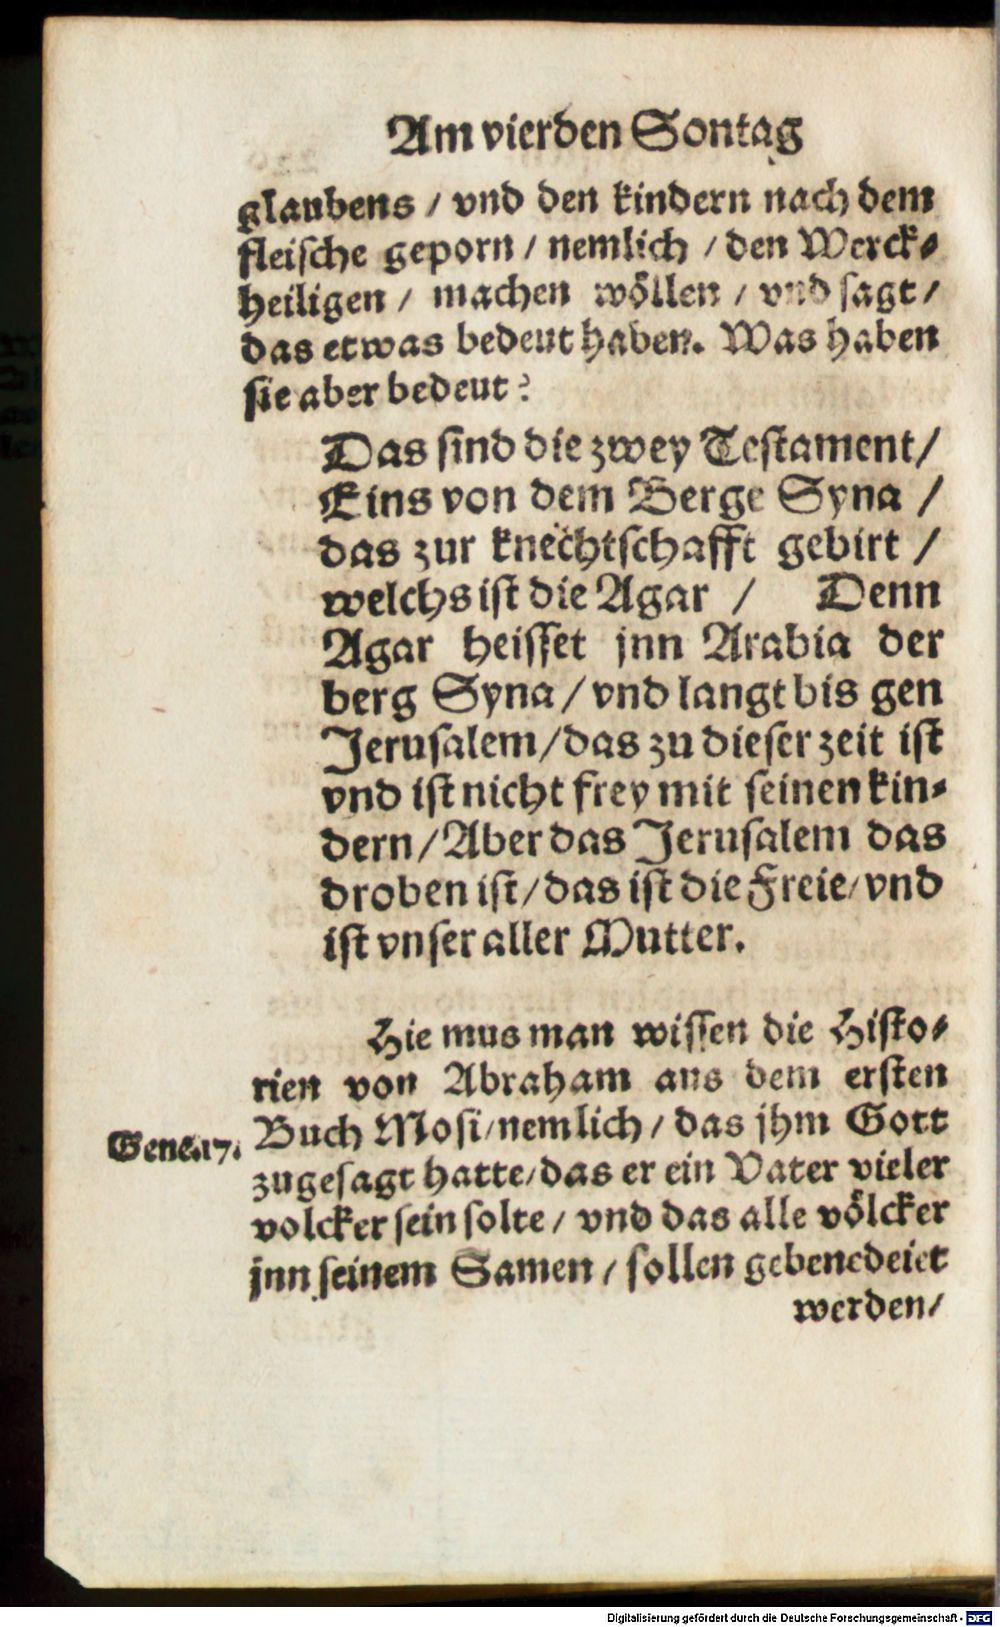 Am vierden Sontag
glaubens / vnd den kindern nach dem
fleische geporn / nemlich / den Werck⸗
heiligen / machen wöllen / vnd sagt /
das etwas bedeut haben. Was haben
sie aber bedeut?
Das sind die zwey Testament /
Eins von dem Berge Syna /
das zur knechtschafft gebirt /
welchs ist die Agar / Denn
Agar heisset jnn Arabia der
berg Syna / vnd langt bis gen
Jerusalem / das zu dieser zeit ist
vnd ist nicht frey mit seinen kin⸗
dern / Aber das Jerusalem das
droben ist / das ist die Freie / vnd
ist vnser aller Mutter.
Hie mus man wissen die Histo⸗
rien von Abraham aus dem ersten
Gene.17. Buch Mosi / nemlich / das jhm Gott
zugesagt hatte / das er ein Vater vieler
volcker sein solte / vnd das alle völcker
jnn seinem Samen / sollen gebenedeiet
werden /
Digitalisierung gefördert durch die Deutsche Forschungsgemeinschaft - DFG